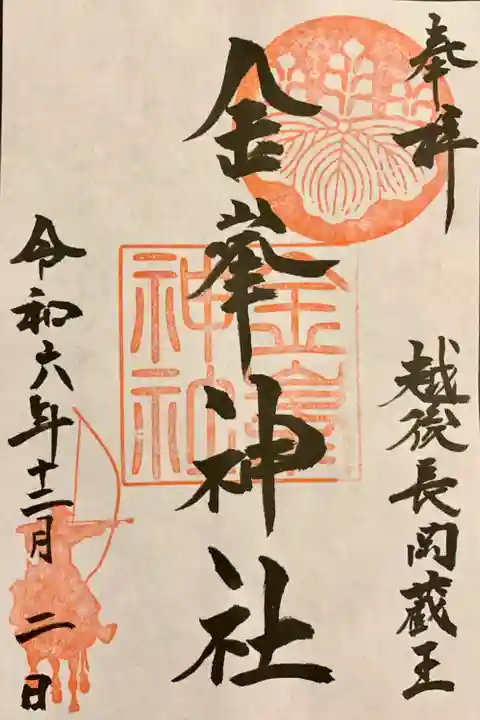 奉拝
越後長岡蔵王
金峯神社
金峯神社
令和六年十二月二日